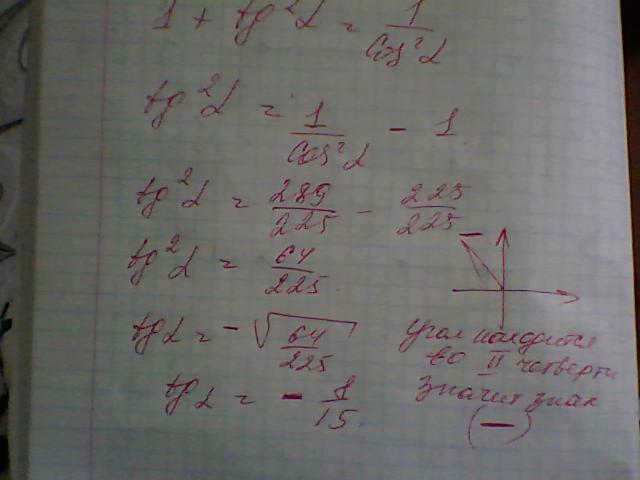 1 + tg²α = 1/Cos²α
tg²α = 1/Cos²α - 1
tg²α = 289/225 - 225/225
tg²α = 64/225
tgα = - √64/225
tgα = - 8/15.
угол находится
во II четверти
значит знак
(-)